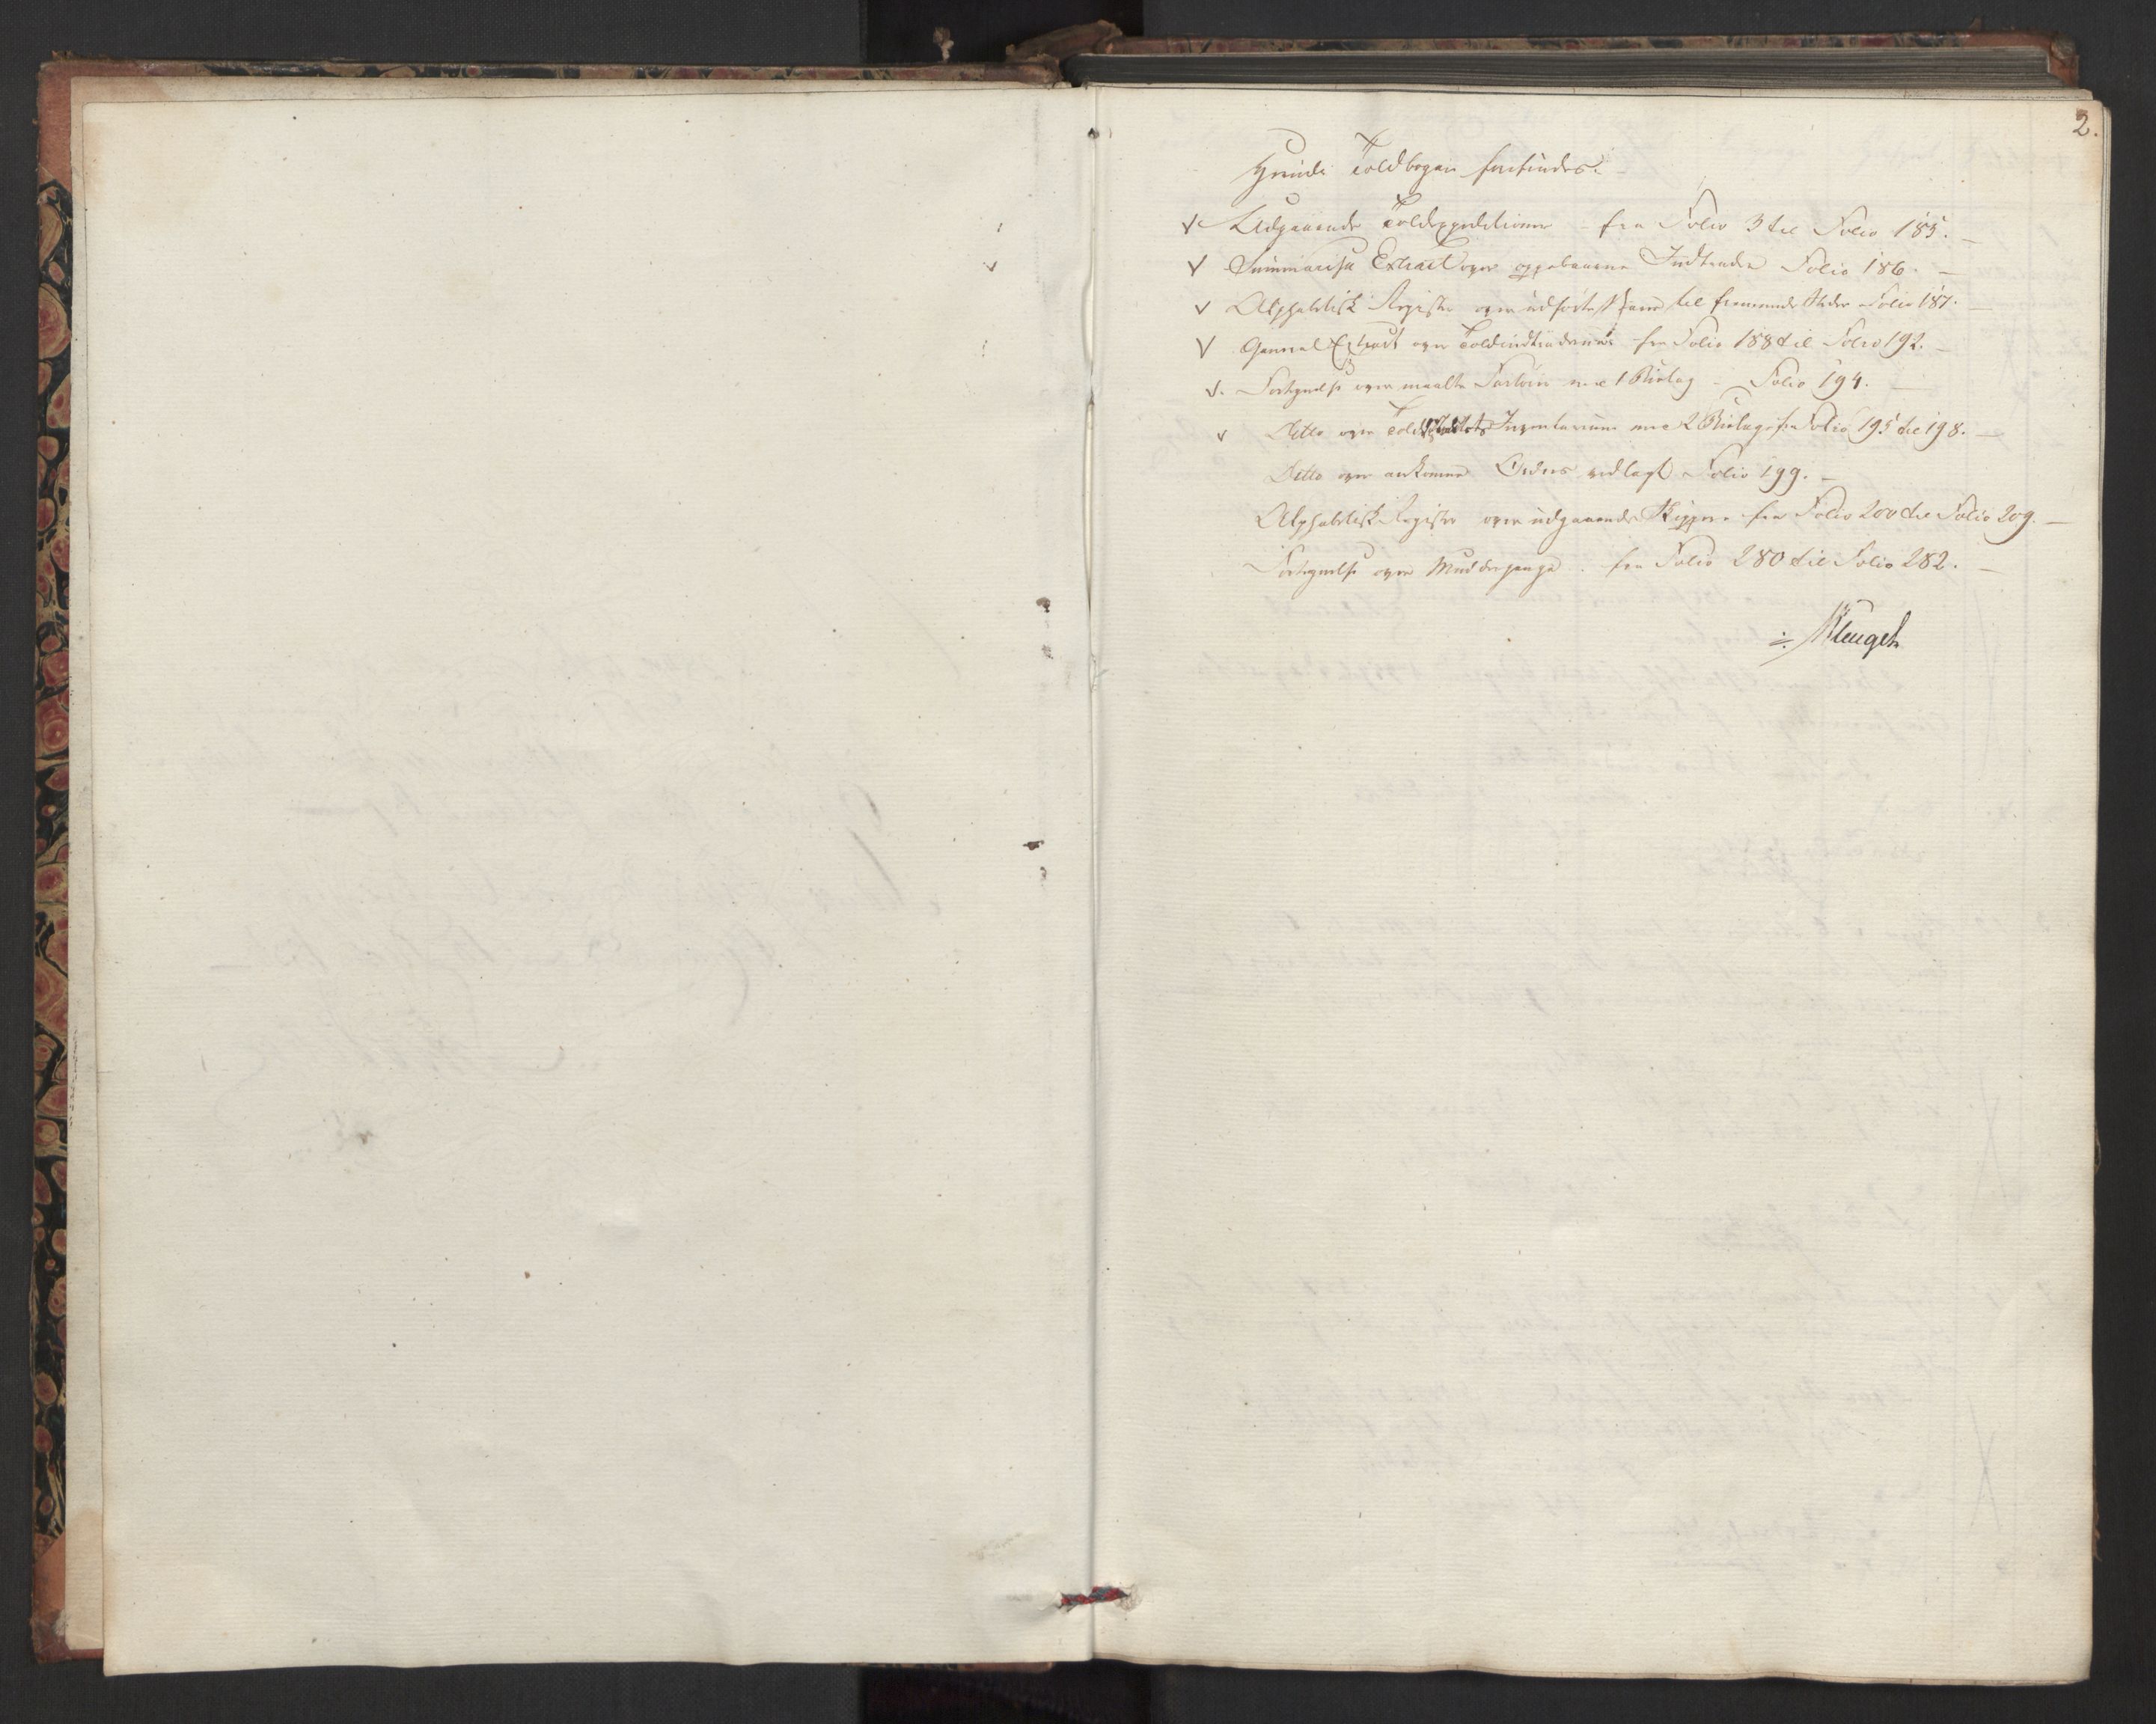 2.
Hermede Toldbogen forefindes.
√ Udgaaende Toldexpeditioner fra Folio 3 til Folio 185.
√ Summarisk Extract over oppebaarne Indtræder Folio 186.
√ Alphabetisk Register over udførte Vare til fremmede Steder Folio 187.
√ General Extract over Toldindtræderne fra Folio 188 til Folio 192.
√. Fortegnelse over maalte Fartøier med 1 Bielag - Folio 194.
√ Ditto over Inventarium med 2 Bielage fra Folio 195 til 198.
Ditto over ankomne Ordres vedlagt Folio 199.
Alphabetisk Register over udgaaende Skippere fra Folio 200 til Folio 209.
Fortegnelse over Mudderpenge. fra Folio 280 til Folio 282.